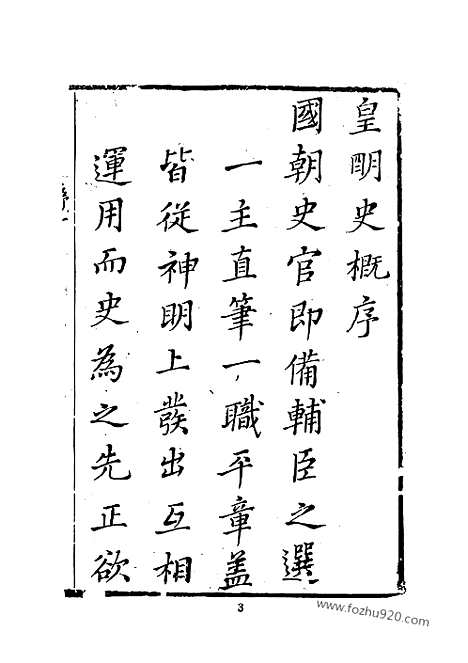 皇明史概序
國朝史官即備輔臣之選
一主直筆一職平章蓋
皆從神明上發出互相
運用而史為之先正欲
序一
3
www.fozhu920.com